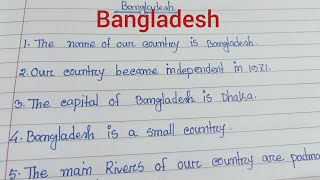 Bangladesh
Bangladesh
1. The name of our country is Bangladesh.
2. Our country became independent in 1971.
3. The capital of Bangladesh is Dhaka.
4. Bangladesh is a small country.
5. The main Rivers of our country are padma